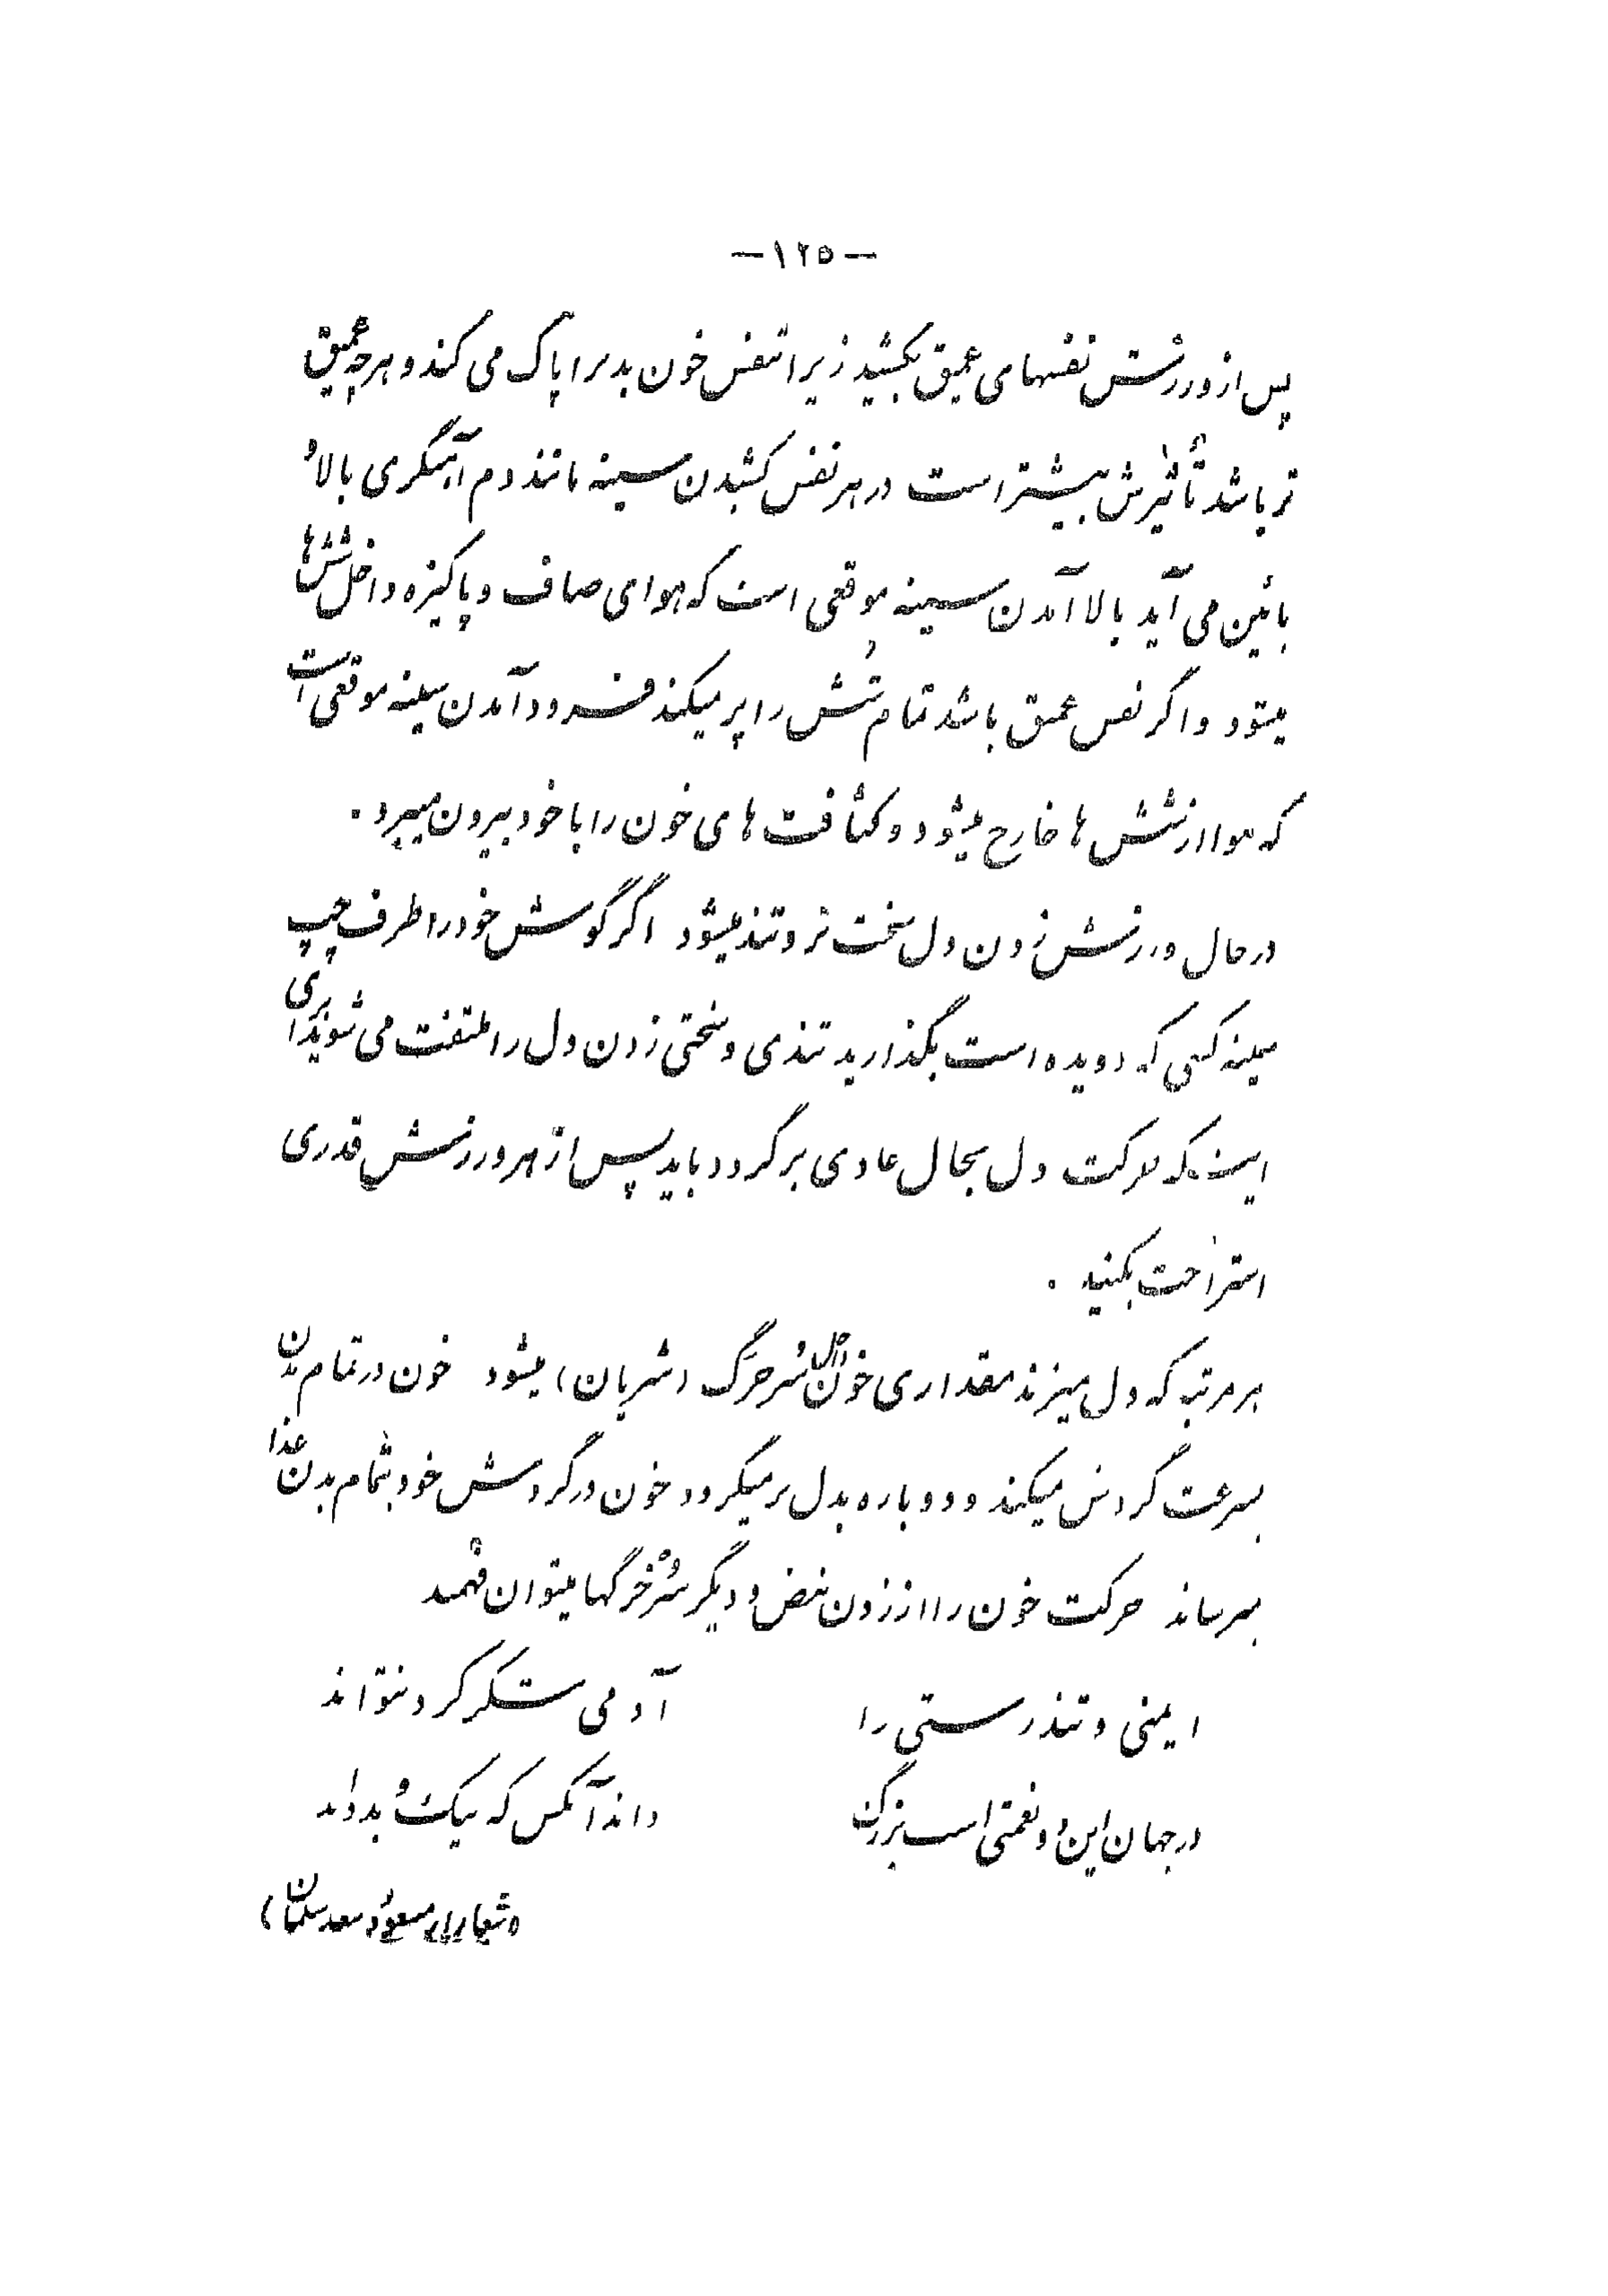 — ۱۲۵ —
پس از ورزش نفسهای عمیق بکشید زیرا تنفس خون بد را پاک می کند و هر چه عمیق
تر باشد تأثیرش بیشتر است در هر نفس کشیدن سینه مانند دم آهنگری بالا و
پائین می آید بالا آمدن سینه موقعی است که هوای صاف و پاکیزه داخل شش ها
میشود و اگر نفس عمیق باشد تمام شش را پر میکند و فرود آمدن سینه موقعی است
که هوا از شش ها خارج میشود و کثافت های خون را با خود بیرون میبرد .
در حال ورزش زدن دل سخت تر و تند میشود اگر گوش خود را طرف چپ
سینه کسی که دویده است بگذارید تندی و سختی زدن دل را ملتفت می شوید برای
اینکه حرکت دل بحال عادی برگردد باید پس از هر ورزش قدری
استراحت بکنید .
هر مرتبه که دل میزند مقداری خون داخل سرخرگ (شریان) میشود خون در تمام بدن
بسرعت گردش میکند و دوباره بدل برمیگردد خون در گردش خود بتمام بدن غذا
میرساند حرکت خون را از زدن نبض و دیگر سرخرگها میتوان فهمید
ایمنی و تندرستی را آدمی شکر کرد نتواند
در جهان این دو نعمتی است بزرگ داند آنکس که نیک و بد داند
مسعود سعد سلمان)